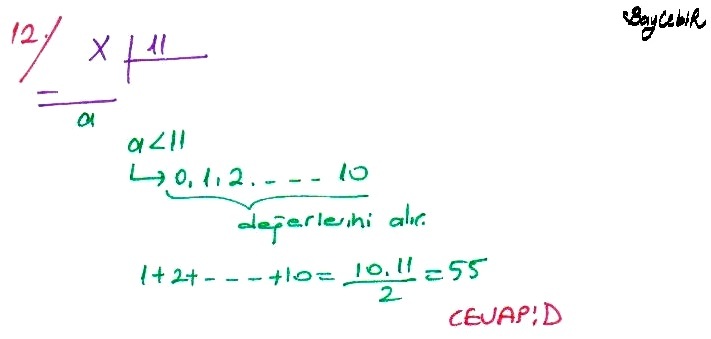 BayCebiR
12.
x | 11
a
a<11
0, 1, 2, ---- 10
değerlerini alır.
1+2+----+10 = 10.11/2 = 55
CEVAP:D